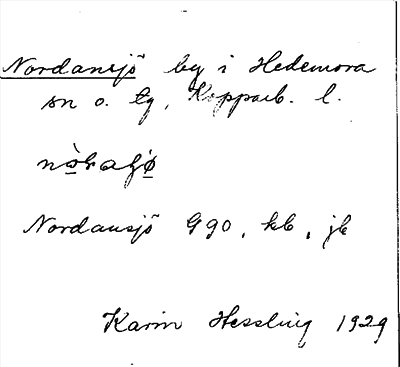 Nordansjö by i Hedemora
sn o. tg, Kopparb. l.
Nordansjö Ggo, kb, jb
Karin Hessling 1929